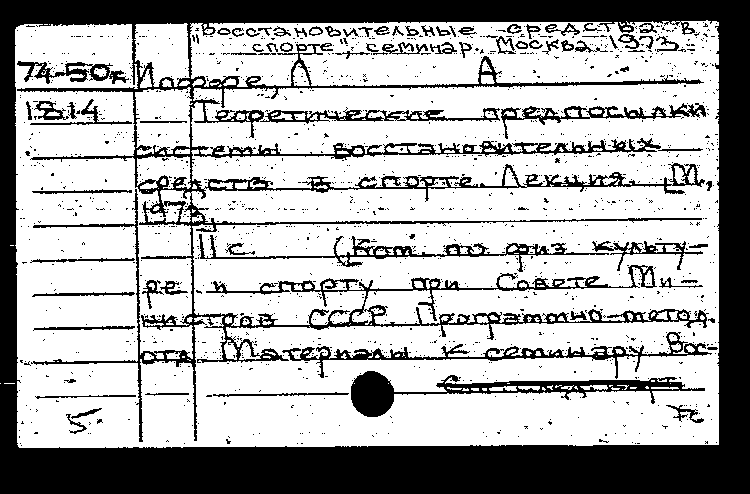 "Восстановительные средства в
спорте", семинар. Москва. 1973
74-50к Иоффе, Л А
1814 Теоретические предпосылки
системы восстановительных
средств в спорте. Лекция. [М.,
1973].
11 с. (Ком. по физ. культу-
ре и спорту при Совете Ми-
нистров СССР. Программно-метод.
отд. Материалы к семинару "Вос-
См. след. карт
5.